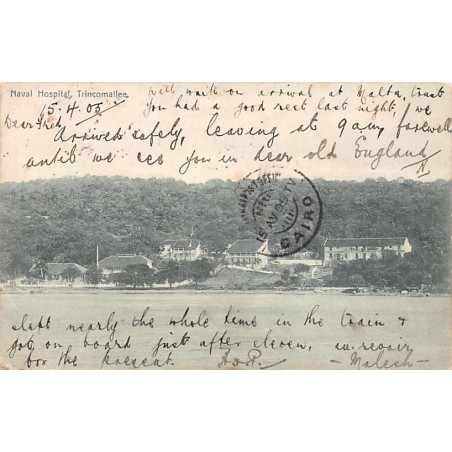 Naval Hospital, Trincomallee.
15.4.05
Will write on arrival at Malta, trust
you had a good rest last night, we
Dear
Arrived safely, leaving at 9am, farewell
until we see you in dear old England
CAIRO
slept nearly the whole time in the train &
got on board just after eleven, au revoir
for the present. Malesh -